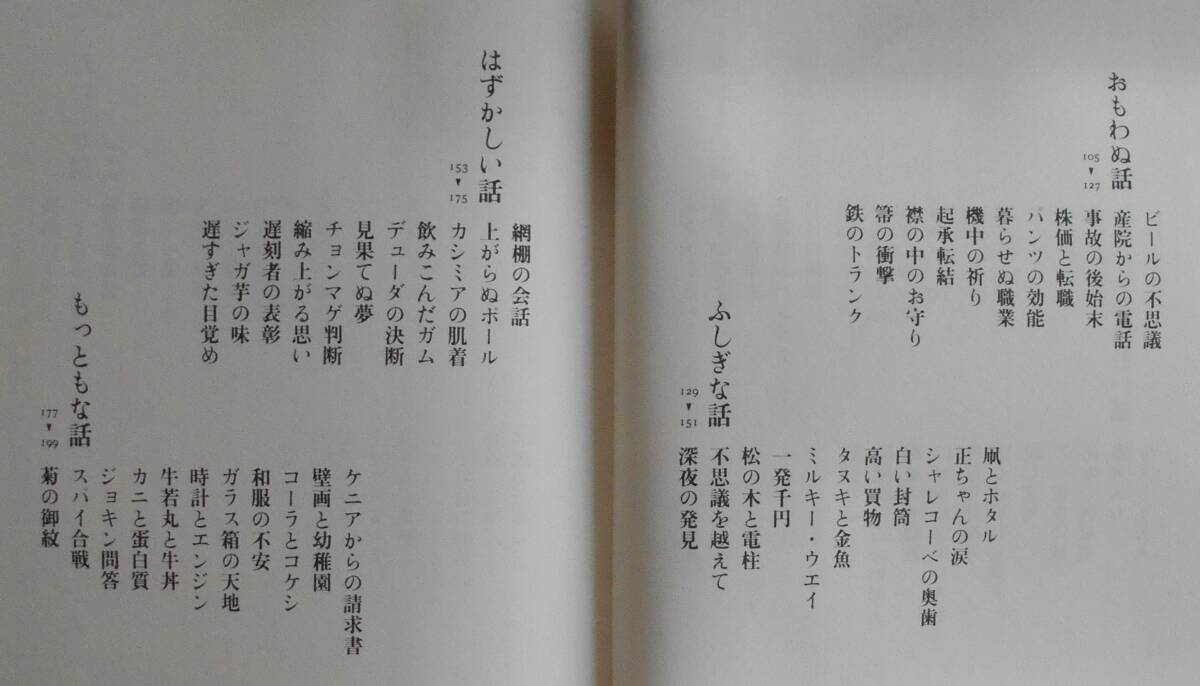 おもわぬ話
105▼127
ビールの不思議
産院からの電話
事故の後始末
株価と転職
パンツの効能
暮らせぬ職業
機中の祈り
起承転結
襟の中のお守り
箒の衝撃
鉄のトランク
ふしぎな話
129▼151
凧とホタル
正ちゃんの涙
シャレコーベの奥歯
白い封筒
高い買物
タヌキと金魚
ミルキー・ウエイ
一発千円
松の木と電柱
不思議を越えて
深夜の発見
はずかしい話
153▼175
網棚の会話
上がらぬポール
カシミアの肌着
飲みこんだガム
デューダの決断
見果てぬ夢
チョンマゲ判断
縮み上がる思い
遅刻者の表彰
ジャガ芋の味
遅すぎた目覚め
もっともな話
177▼199
ケニアからの請求書
壁画と幼稚園
コーラとコケシ
和服の不安
ガラス箱の天地
時計とエンジン
牛若丸と牛丼
カニと蛋白質
ジョキン問答
スパイ合戦
菊の御紋